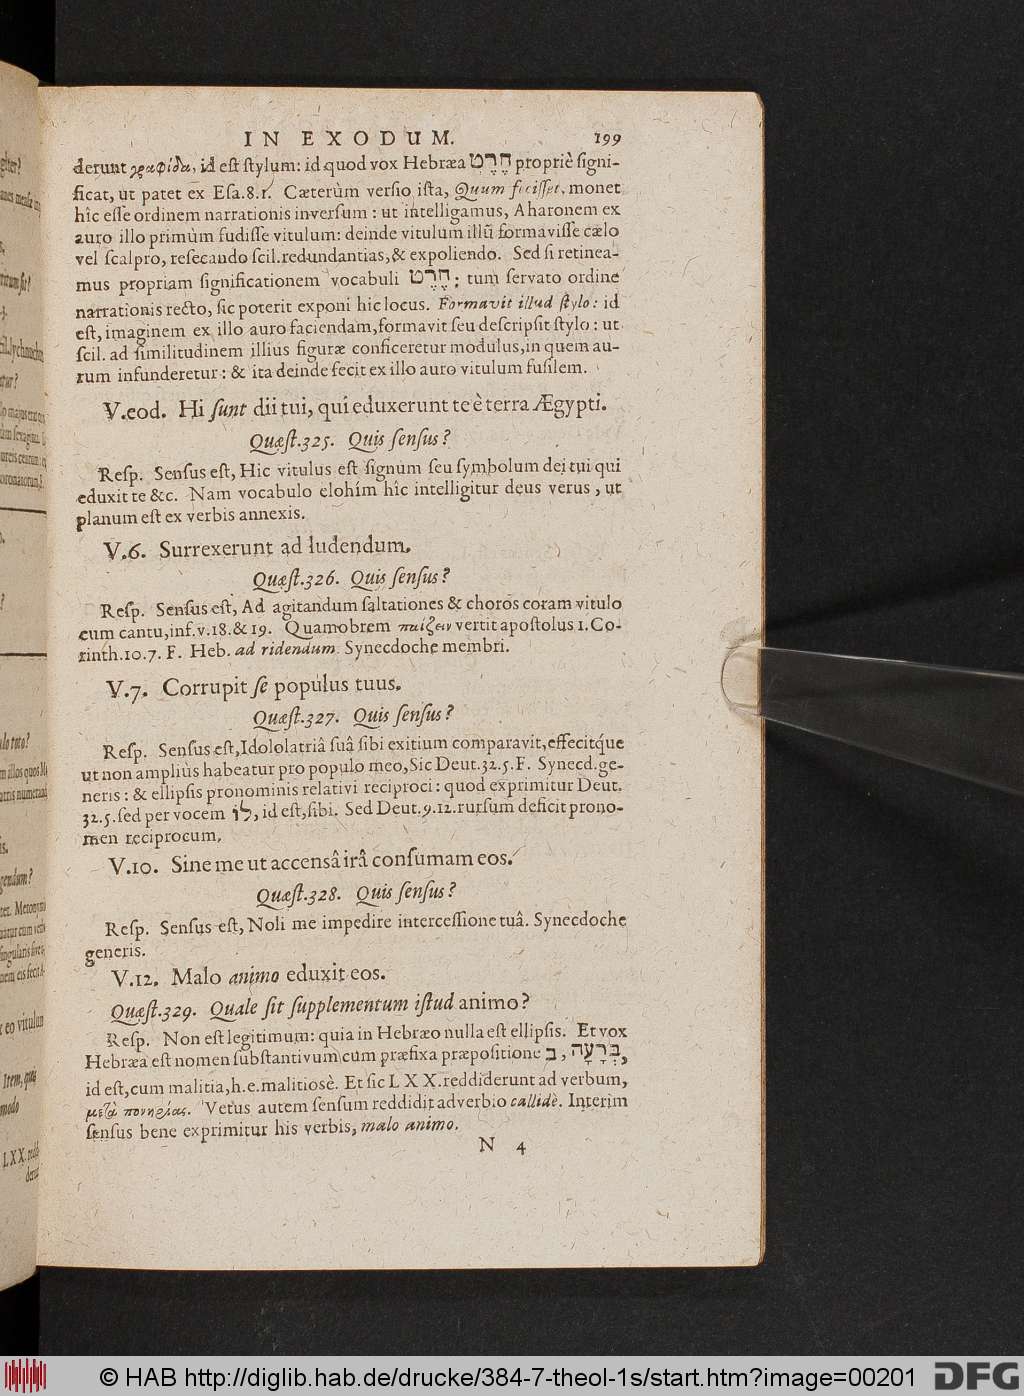 IN EXODUM. 199
derunt γραφίδα, id est stylum: id quod vox Hebræa חֶרֶט propriè signi-
ficat, ut patet ex Esa.8.1. Cæterùm versio ista, Quum fecisset, monet
hîc esse ordinem narrationis inversum: ut intelligamus, Aharonem ex
auro illo primùm fudisse vitulum: deinde vitulum illũ formavisse cælo
vel scalpro, resecando scil. redundantias, & expoliendo. Sed si retinea-
mus propriam significationem vocabuli חֶרֶט; tum servato ordine
narrationis recto, sic poterit exponi hic locus. Formavit illud stylo: id
est, imaginem ex illo auro faciendam, formavit seu descripsit stylo: ut
scil. ad similitudinem illius figuræ conficeretur modulus, in quem au-
rum infunderetur: & ita deinde fecit ex illo auro vitulum fusilem.
V.eod. Hi sunt dii tui, qui eduxerunt te è terra Ægypti.
Quæst.325. Quis sensus?
Resp. Sensus est, Hic vitulus est signum seu symbolum dei tui qui
eduxit te &c. Nam vocabulo elohím hîc intelligitur deus verus, ut
planum est ex verbis annexis.
V.6. Surrexerunt ad ludendum.
Quæst.326. Quis sensus?
Resp. Sensus est, Ad agitandum saltationes & choros coram vitulo
cum cantu, inf.v.18.& 19. Quamobrem παίζειν vertit apostolus 1.Co-
rinth.10.7. F. Heb. ad ridendum. Synecdoche membri.
V.7. Corrupit se populus tuus.
Quæst.327. Quis sensus?
Resp. Sensus est, Idololatriâ suâ sibi exitium comparavit, effecitq́ue
ut non ampliùs habeatur pro populo meo, Sic Deut.32.5. F. Synecd.ge-
neris: & ellipsis pronominis relativi reciproci: quod exprimitur Deut.
32.5. sed per vocem לוֹ, id est, sibi. Sed Deut.9.12. rursum deficit prono-
men reciprocum.
V.10. Sine me ut accensâ irâ consumam eos.
Quæst.328. Quis sensus?
Resp. Sensus est, Noli me impedire intercessione tuâ. Synecdoche
generis.
V.12. Malo animo eduxit eos.
Quæst.329. Quale sit supplementum istud animo?
Resp. Non est legitimum: quia in Hebræo nulla est ellipsis. Et vox
Hebræa est nomen substantivum cum præfixa præpositione ב, בְּרָעָה,
id est, cum malitia, h.e. malitiosè. Et sic LXX. reddiderunt ad verbum,
μετὰ πονηρίας. Vetus autem sensum reddidit adverbio callidè. Interim
sensus bene exprimitur his verbis, malo animo.
N 4
© HAB http://diglib.hab.de/drucke/384-7-theol-1s/start.htm?image=00201
DFG